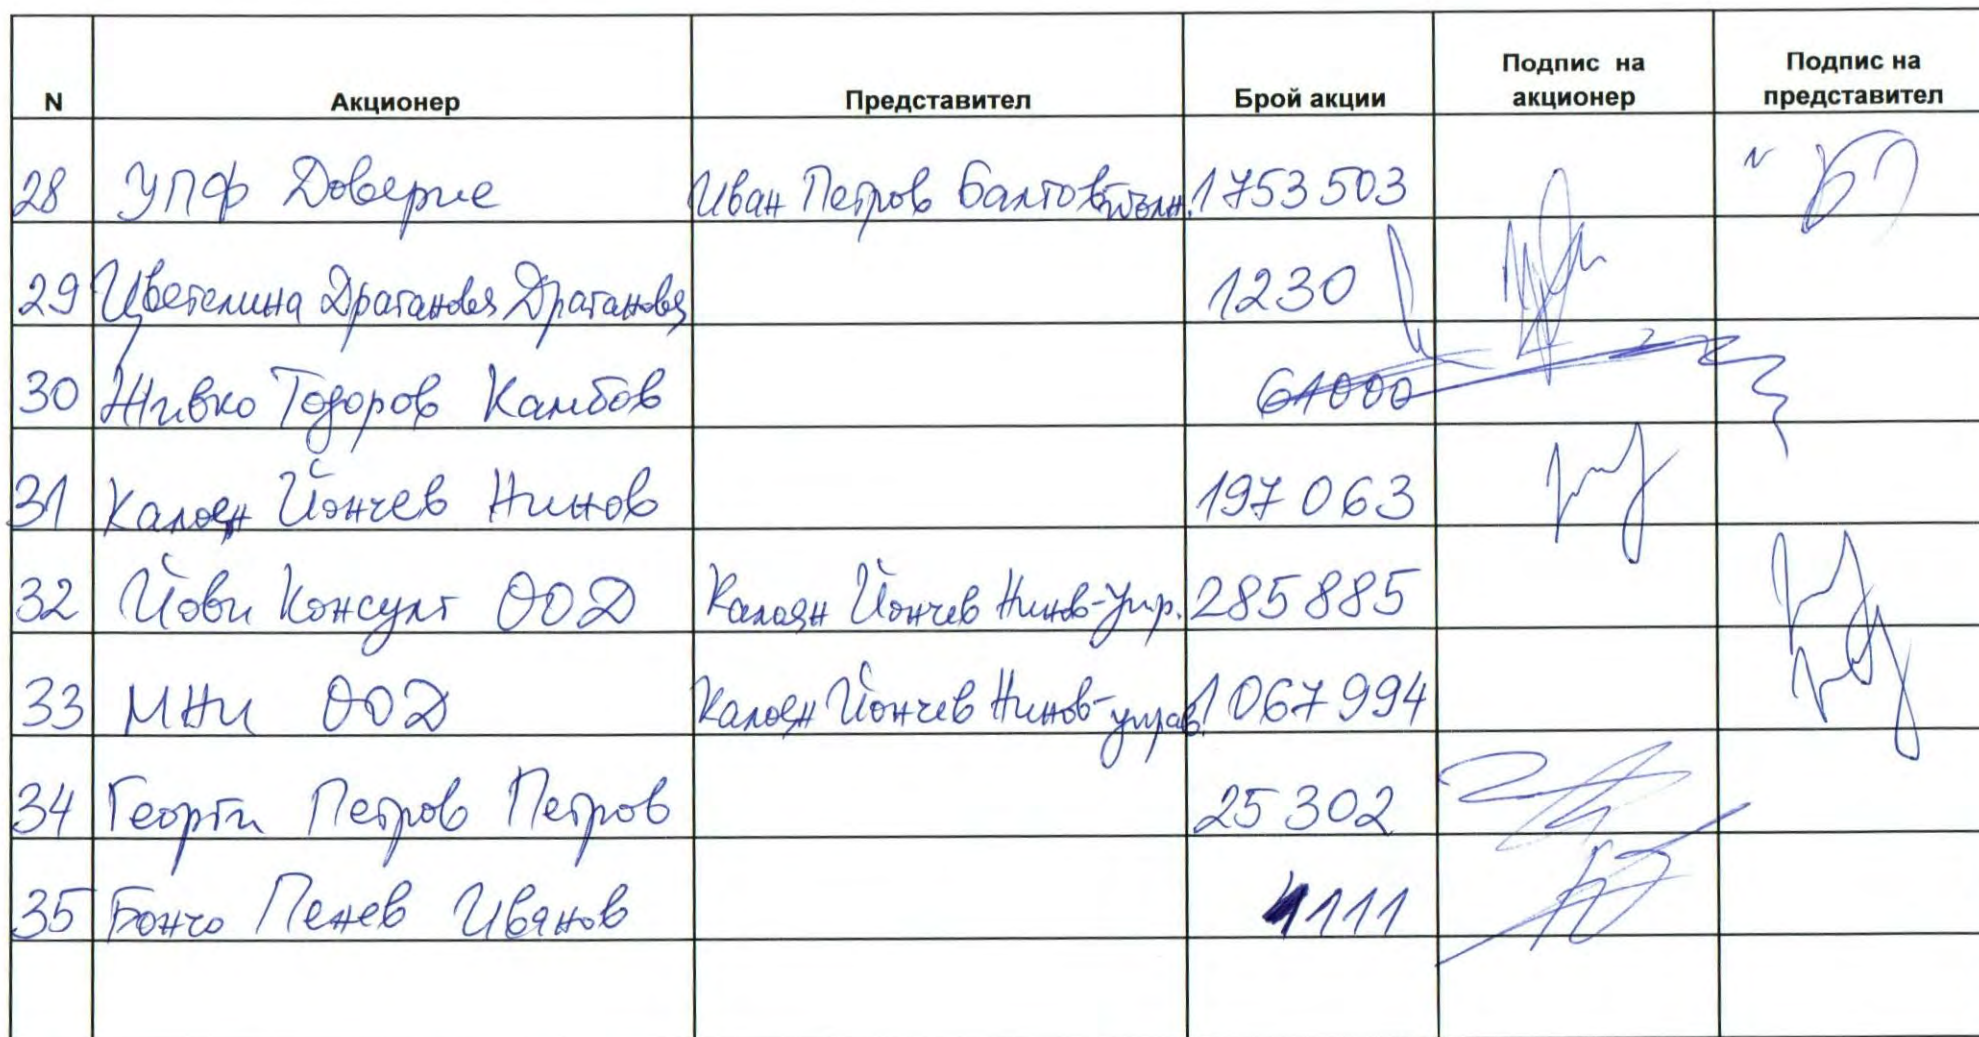 N Акционер Представител Брой акции Подпис на акционер Подпис на представител
28 УПФ Доверие Иван Петров Балтов 1753 503
29 Цветелина Драганова Драганова 1230
30 Живко Тодоров Камбов 61000
31 Калоян Йончев Нинов 197 063
32 Йови Консулт ООД Калоян Йончев Нинов-упр. 285 885
33 МНИ ООД Калоян Йончев Нинов-управ. 1 067 994
34 Георги Петров Петров 25 302
35 Бончо Пенев Иванов 1111